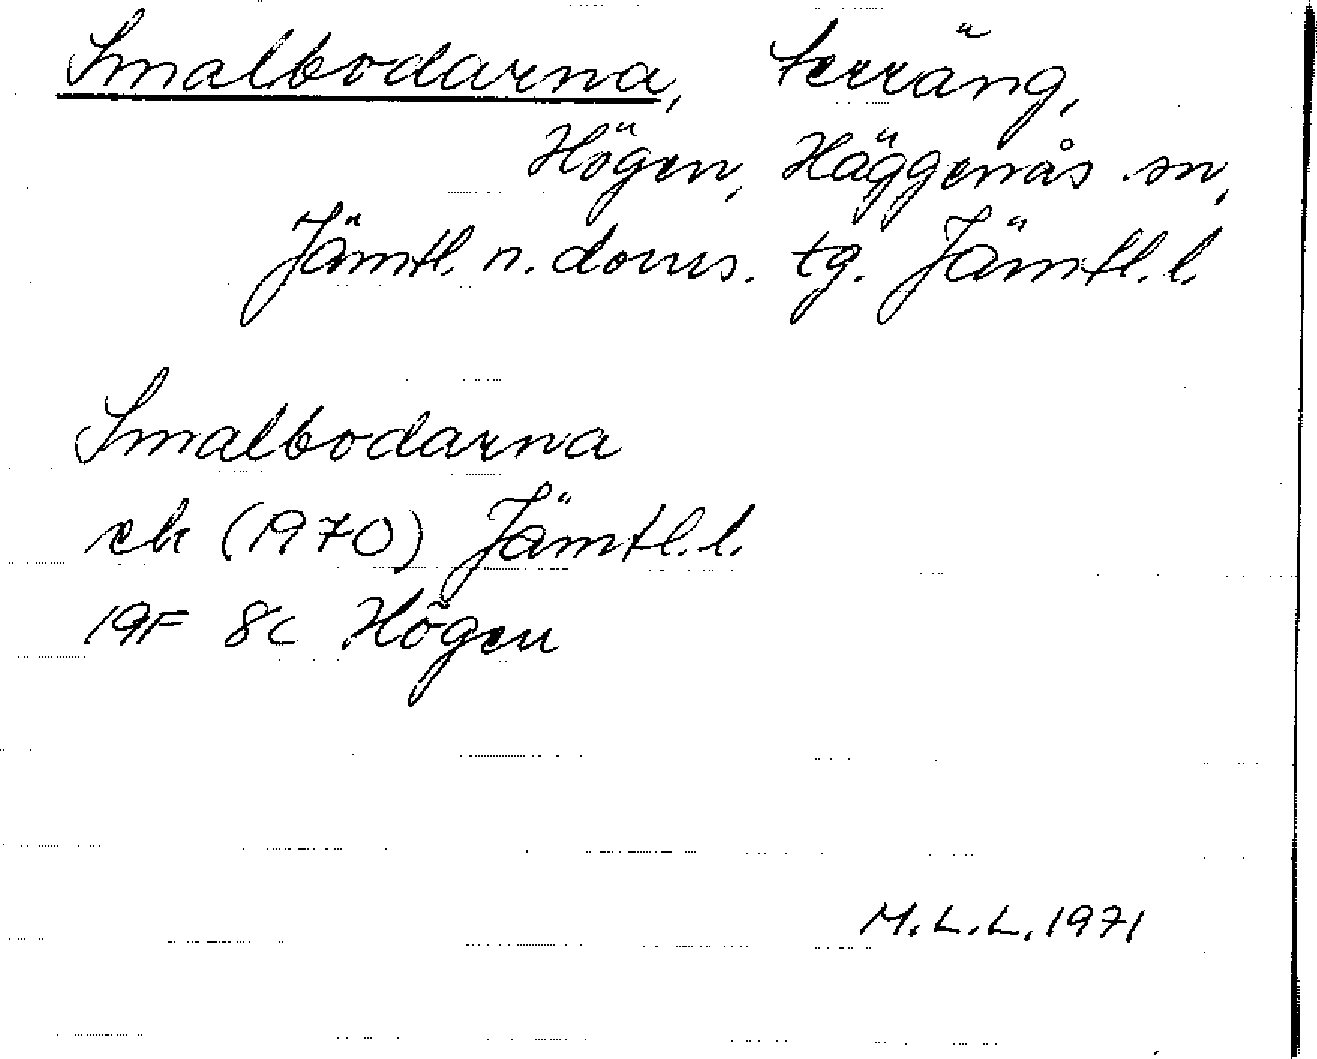 Smalbodarna, terräng,
Högen, Häggenås sn,
Jämtl. n. doms. tg. Jämtl. l.
Smalbodarna
ek (1970) Jämtl. l.
19F 8c Högen
M.L.L. 1971